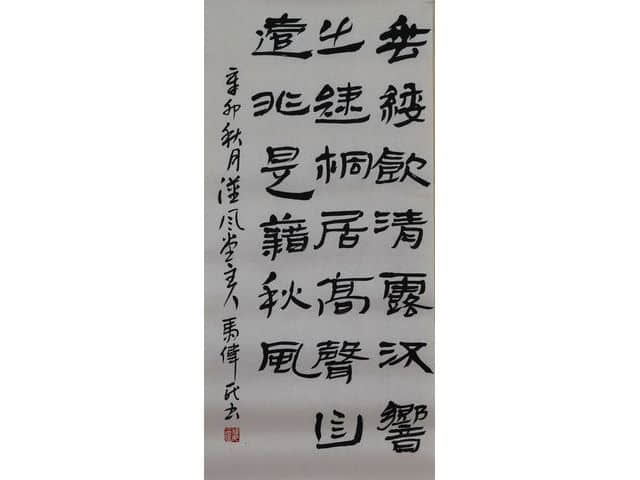 垂緌飲清露流響
出疎桐居高聲自
遠非是藉秋風
辛卯秋月漢風堂主人馬偉民書